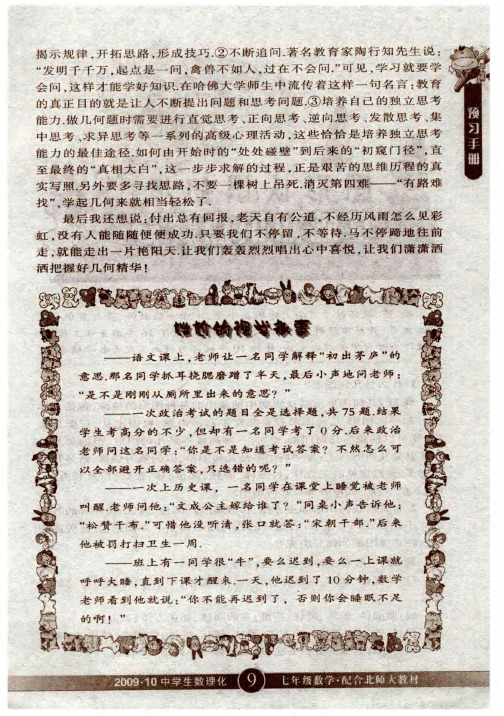 揭示规律,开拓思路,形成技巧.②不断追问.著名教育家陶行知先生说:
“发明千千万,起点是一问,禽兽不如人,过在不会问.”可见,学习就要学
会问,这样才能学好知识.在哈佛大学师生中流传着这样一句名言:教育
的真正目的就是让人不断提出问题和思考问题.③培养自己的独立思考
能力.做几何题时需要进行直觉思考、正向思考、逆向思考、发散思考、集
中思考、求异思考等一系列的高级心理活动,这些恰恰是培养独立思考
能力的最佳途径.如何由开始时的“处处碰壁”到后来的“初窥门径”,直
至最终的“真相大白”,这一步步求解的过程,正是艰苦的思维历程的真
实写照.另外要多寻找思路,不要一棵树上吊死.消灭第四难——“有路难
找”,学起几何来就相当轻松了.
最后我还想说:付出总有回报,老天自有公道,不经历风雨怎么见彩
虹,没有人能随随便便成功.只要我们不停留,不等待.马不停蹄地往前
走,就能走出一片艳阳天.让我们轰轰烈烈唱出心中喜悦,让我们潇潇洒
洒把握好几何精华!
预习手册
——语文课上,老师让一名同学解释“初出茅庐”的
意思.那名同学抓耳挠腮磨蹭了半天,最后小声地问老师:
“是不是刚刚从厕所里出来的意思?”
——一次政治考试的题目全是选择题,共75题.结果
学生考高分的不少,但却有一名同学考了0分.后来政治
老师问这名同学:“你是不是知道考试答案? 不然怎么可
以全部避开正确答案,只选错的呢?”
——一次上历史课, 一名同学在课堂上睡觉被老师
叫醒.老师问他:“文成公主嫁给谁了?”同桌小声告诉他:
“松赞干布.”可惜他没听清,张口就答:“宋朝干部.”后来
他被罚打扫卫生一周.
——班上有一同学很“牛”,要么迟到,要么一上课就
呼呼大睡,直到下课才醒来.一天,他迟到了10分钟,数学
老师看到他就说:“你不能再迟到了, 否则你会睡眠不足
的啊!”
2009·10 中学生数理化 9 七年级数学·配合北师大教材